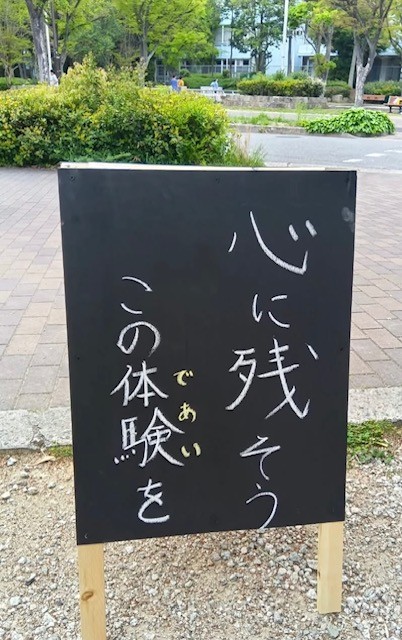 心に残そう
この体験を
であい